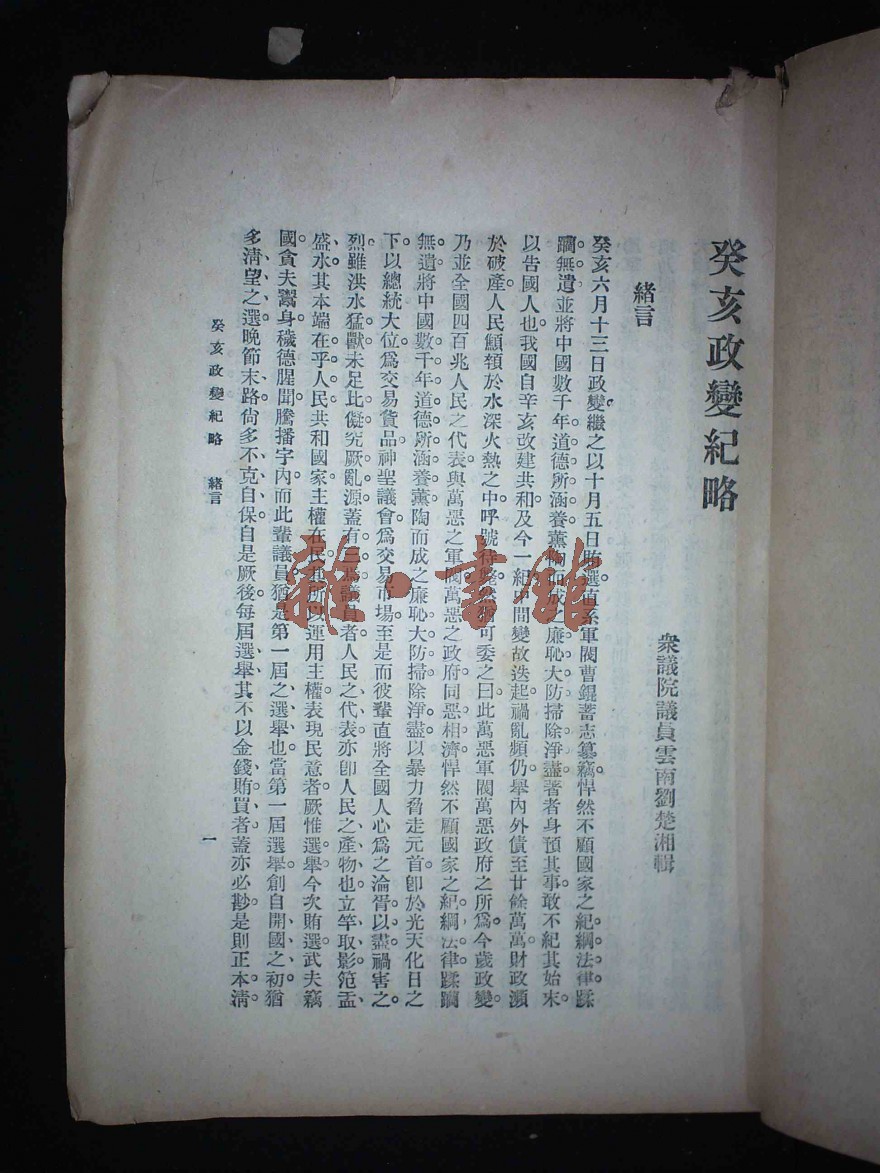 癸亥政變紀略
衆議院議員雲南劉楚湘輯
緒言
癸亥六月十三日政變繼之以十月五日賄選直系軍閥曹錕蓄志篡竊悍然不顧國家之紀綱法律蹂
躪無遺並將中國數千年道德所涵養薰陶而成之廉恥大防掃除淨盡著者身預其事敢不紀其始末
以告國人也我國自辛亥改建共和及今一紀中間變故迭起禍亂頻仍舉內外債至廿餘萬萬財政瀕
於破產人民顛頓於水深火熱之中呼號待可委之曰此萬惡軍閥萬惡政府之所爲今歲政變
乃並全國四百兆人民之代表與萬惡之軍閥萬惡之政府同惡相濟悍然不顧國家之紀綱法律蹂躪
無遺將中國數千年道德所涵養薰陶而成之廉恥大防掃除淨盡以暴力脅走元首卽於光天化日之
下以總統大位爲交易貨品神聖議會爲交易市場至是而彼輩直將全國人心爲之淪胥以盡禍害之
烈雖洪水猛獸未足比儗究厥亂源蓋有三焉議員者人民之代表亦卽人民之產物也立竿取影范盂
盛水其本端在乎人民共和國家主權在民其所以運用主權表現民意者厥惟選舉今次賄選武夫竊
國貪夫鬻身穢德腥聞騰播宇內而此輩議員猶是第一屆之選舉也當第一屆選舉創自開國之初猶
多清望之選晚節末路尙多不克自保自是厥後每屆選舉其不以金錢賄買者蓋亦必尠是則正本清
癸亥政變紀略 緒言
一
雜·書館